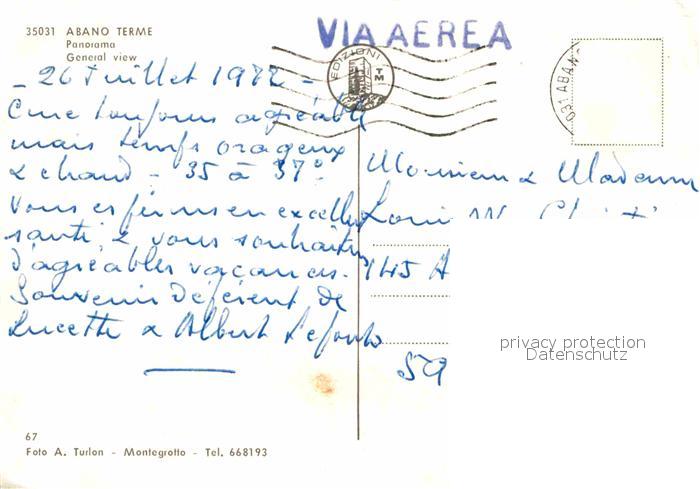 35031 ABANO TERME
Panorama
General view
VIA AEREA
EDIZIONI TM
031 ABANO
- 26 Juillet 1972 -
Cure toujours agréable
mais temps orageux
& chaud - 35 à 37°.
Vous espérons en excellente
santé, & vous souhaitons
d'agréables vacances.
Souvenir déférent de
Lucette & Albert
Monsieur & Madame
Louis
145 A
59
privacy protection
Datenschutz
67
Foto A. Turlon - Montegrotto - Tel. 668193